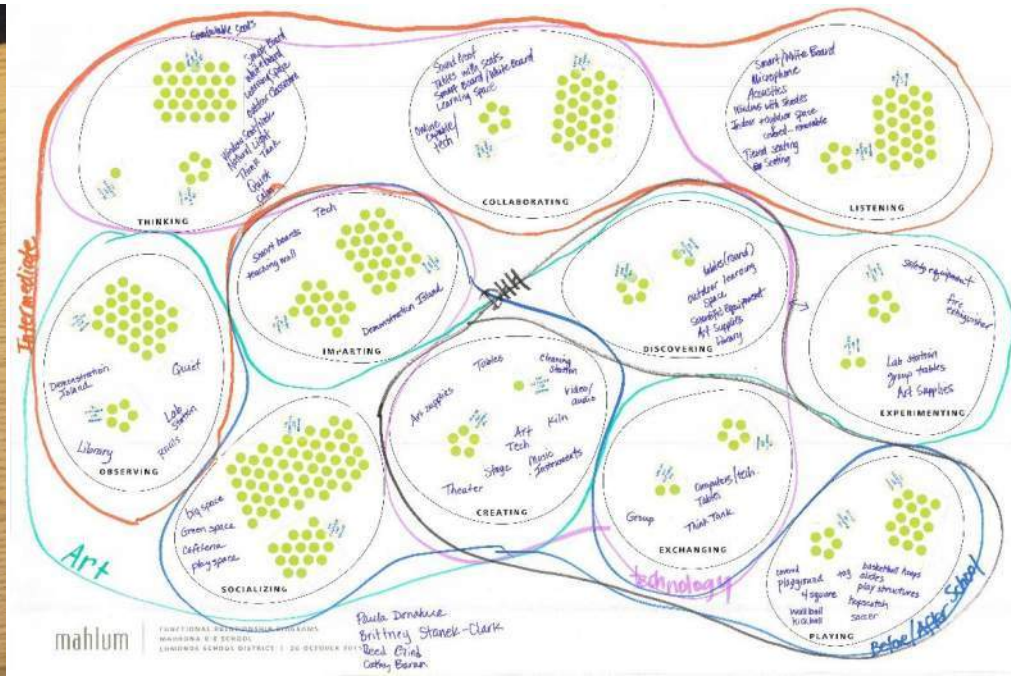 Comfortable seats
Smart Board
White board
Learning Space
Outdoor Classroom
Window Seat/Nook
Natural Light
Think Tank
Quiet
Calm
THINKING
Sound proof
Tables with seats
Smart Board/White Board
Learning Space
Online
Capable/
tech
COLLABORATING
Smart/White Board
Microphone
Acoustics
Windows with Shades
Indoor + Outdoor space
covered... removable
Tiered seating
Seating
LISTENING
Intermediate
Tech
Smart boards
teaching wall
Demonstration Island
IMPARTING
DHH
tables (round)
outdoor learning
space
Scientific Equipment
Art Supplies
library
DISCOVERING
Safety equipment
fire
extinguisher
Lab station
group tables
Art Supplies
EXPERIMENTING
Demonstration
Island
Quiet
Lab
Station
Library
OBSERVING
Tables
Cleaning
Station
Art supplies
Video/
audio
Kiln
Art
Tech
Stage
Music
Instruments
Theater
CREATING
big space
Green space
Cafeteria
play space
SOCIALIZING
Computers/tech
Tables
Group
Think Tank
EXCHANGING
covered
playground
4 square
wallball
kickball
tag
basketball hoops
slides
play structures
hopscotch
soccer
PLAYING
Art
technology
Before/After School
mahlum
FUNCTIONAL RELATIONSHIP DIAGRAMS
MADRONA K-8 SCHOOL
EDMONDS SCHOOL DISTRICT | 26 OCTOBER
Paula Donahue
Brittney Stanek-Clark
Reed
Cathy Baran